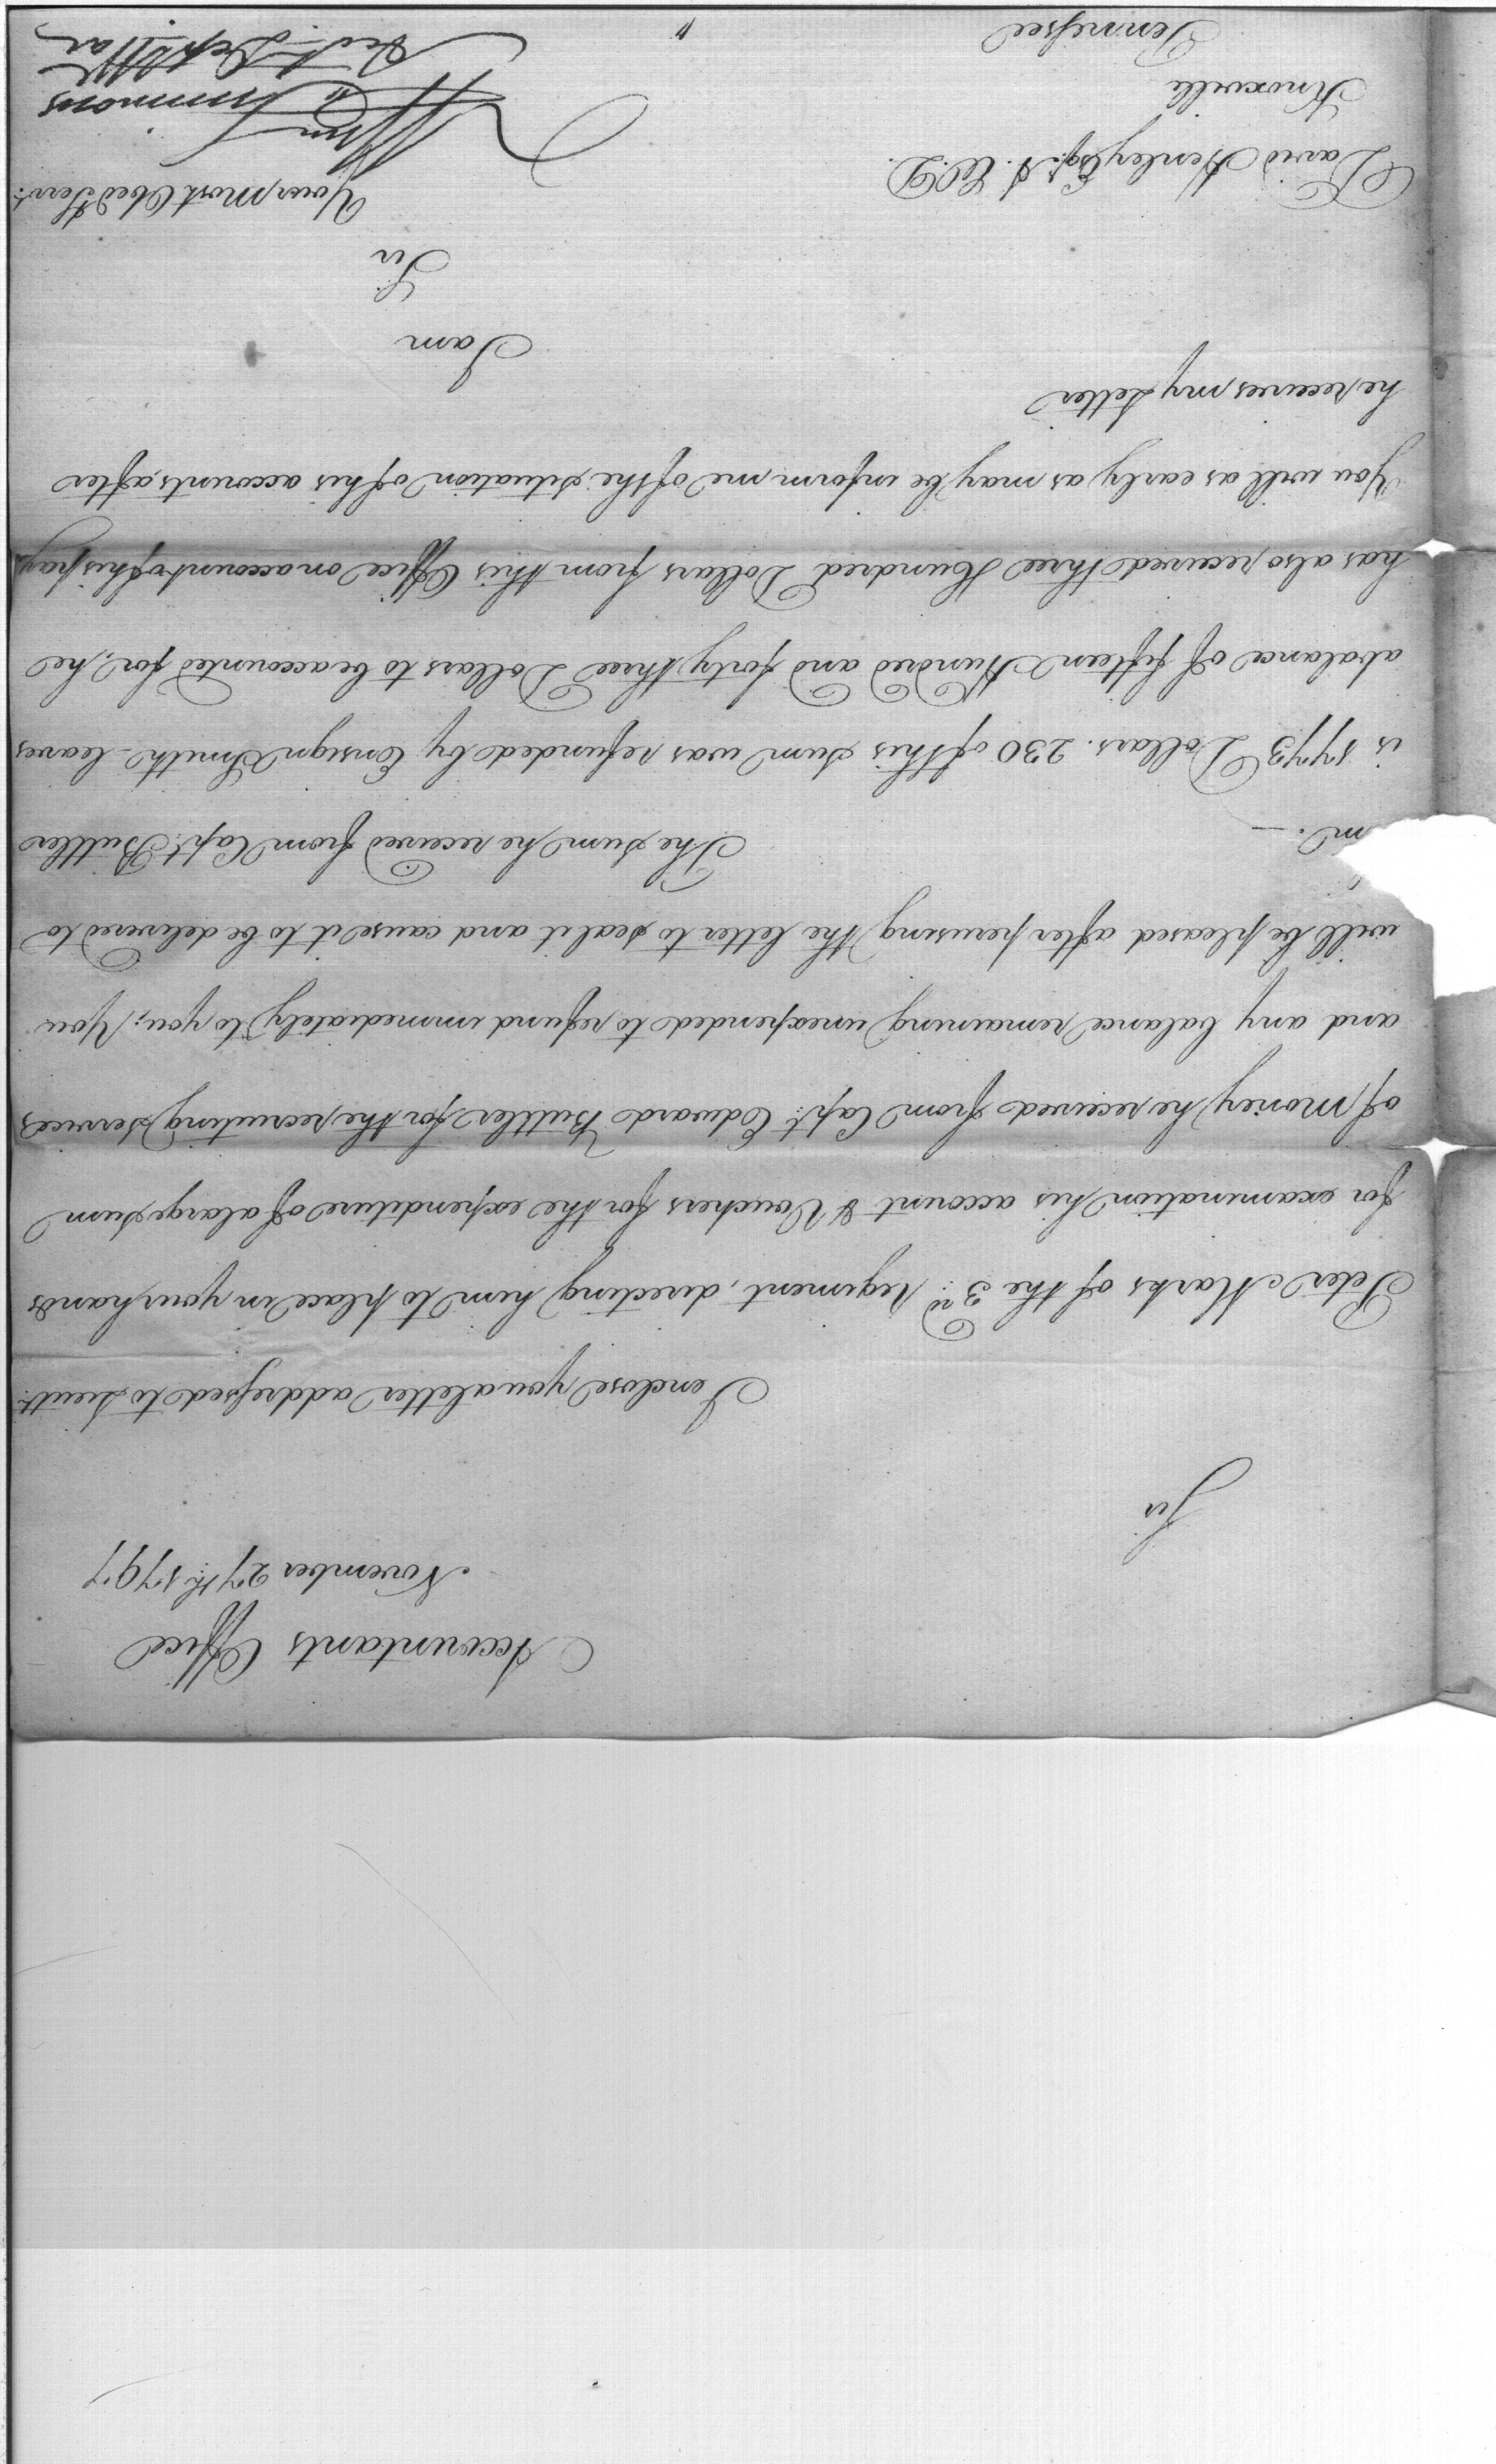 Accountants Office
November 27th: 1797
Sir
I enclose you a letter addressed to Lieut:
Peter Marks of the 3rd: Regiment, directing him to place in your hands
for examination his account & Vouchers for the expenditure of a large sum
of money he received from Capt: Edward Butler for the recruiting service,
and any balance remaining unexpended to refund immediately to you; You
will be pleased after perusing the letter to seal it and cause it to be delivered to
m. —
The sum he received from Capt: Butler
is 1773 Dollars. 230 of this sum was refunded by Ensign Smith - leaves
a balance of fifteen Hundred and forty three Dollars to be accounted for, he
has also received three Hundred Dollars from this Office on account of his pay
You will as early as may be inform me of the situation of his accounts, after
he receives my Letter
I am
Sir
Your most Obed Servt:
Wm Simmons
Acct. Dept War
David Henley Esqr: A. W. D.
Knoxville
Tennessee